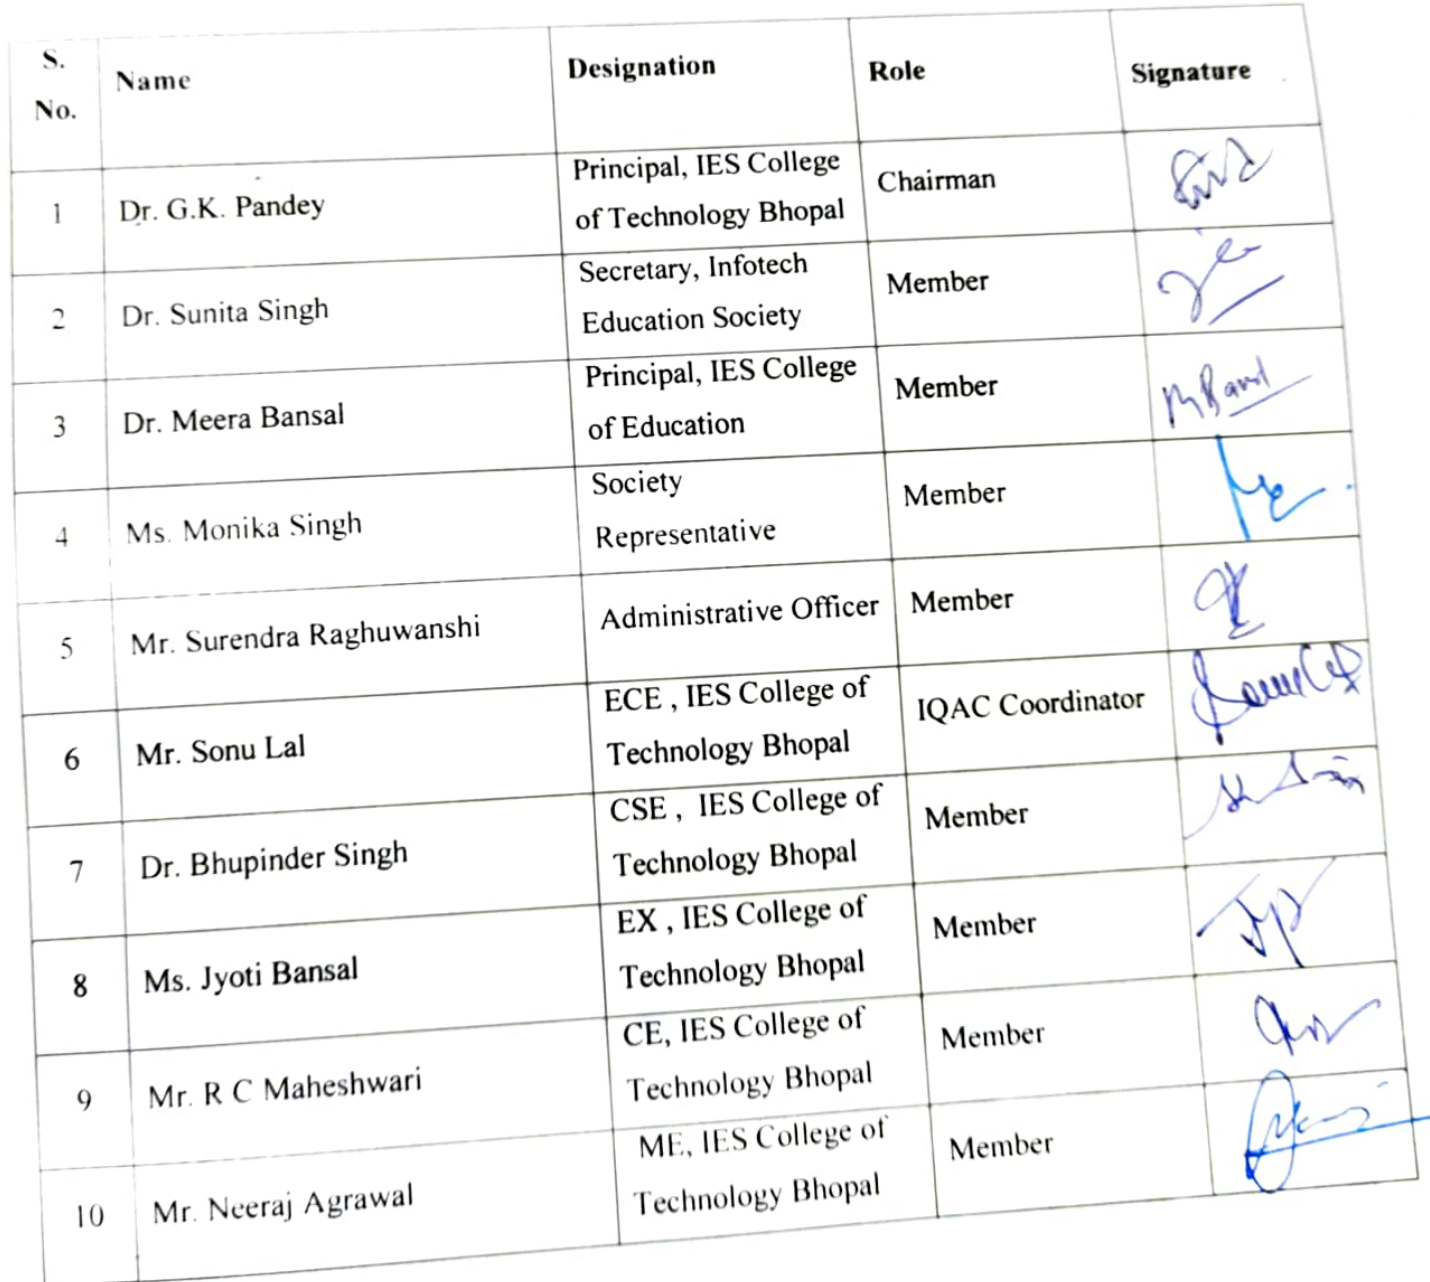 S.
No.
Name
Designation
Role
Signature
1
Dr. G.K. Pandey
Principal, IES College
of Technology Bhopal
Chairman
2
Dr. Sunita Singh
Secretary, Infotech
Education Society
Member
3
Dr. Meera Bansal
Principal, IES College
of Education
Member
4
Ms. Monika Singh
Society
Representative
Member
5
Mr. Surendra Raghuwanshi
Administrative Officer
Member
6
Mr. Sonu Lal
ECE , IES College of
Technology Bhopal
IQAC Coordinator
7
Dr. Bhupinder Singh
CSE , IES College of
Technology Bhopal
Member
8
Ms. Jyoti Bansal
EX , IES College of
Technology Bhopal
Member
9
Mr. R C Maheshwari
CE, IES College of
Technology Bhopal
Member
10
Mr. Neeraj Agrawal
ME, IES College of
Technology Bhopal
Member